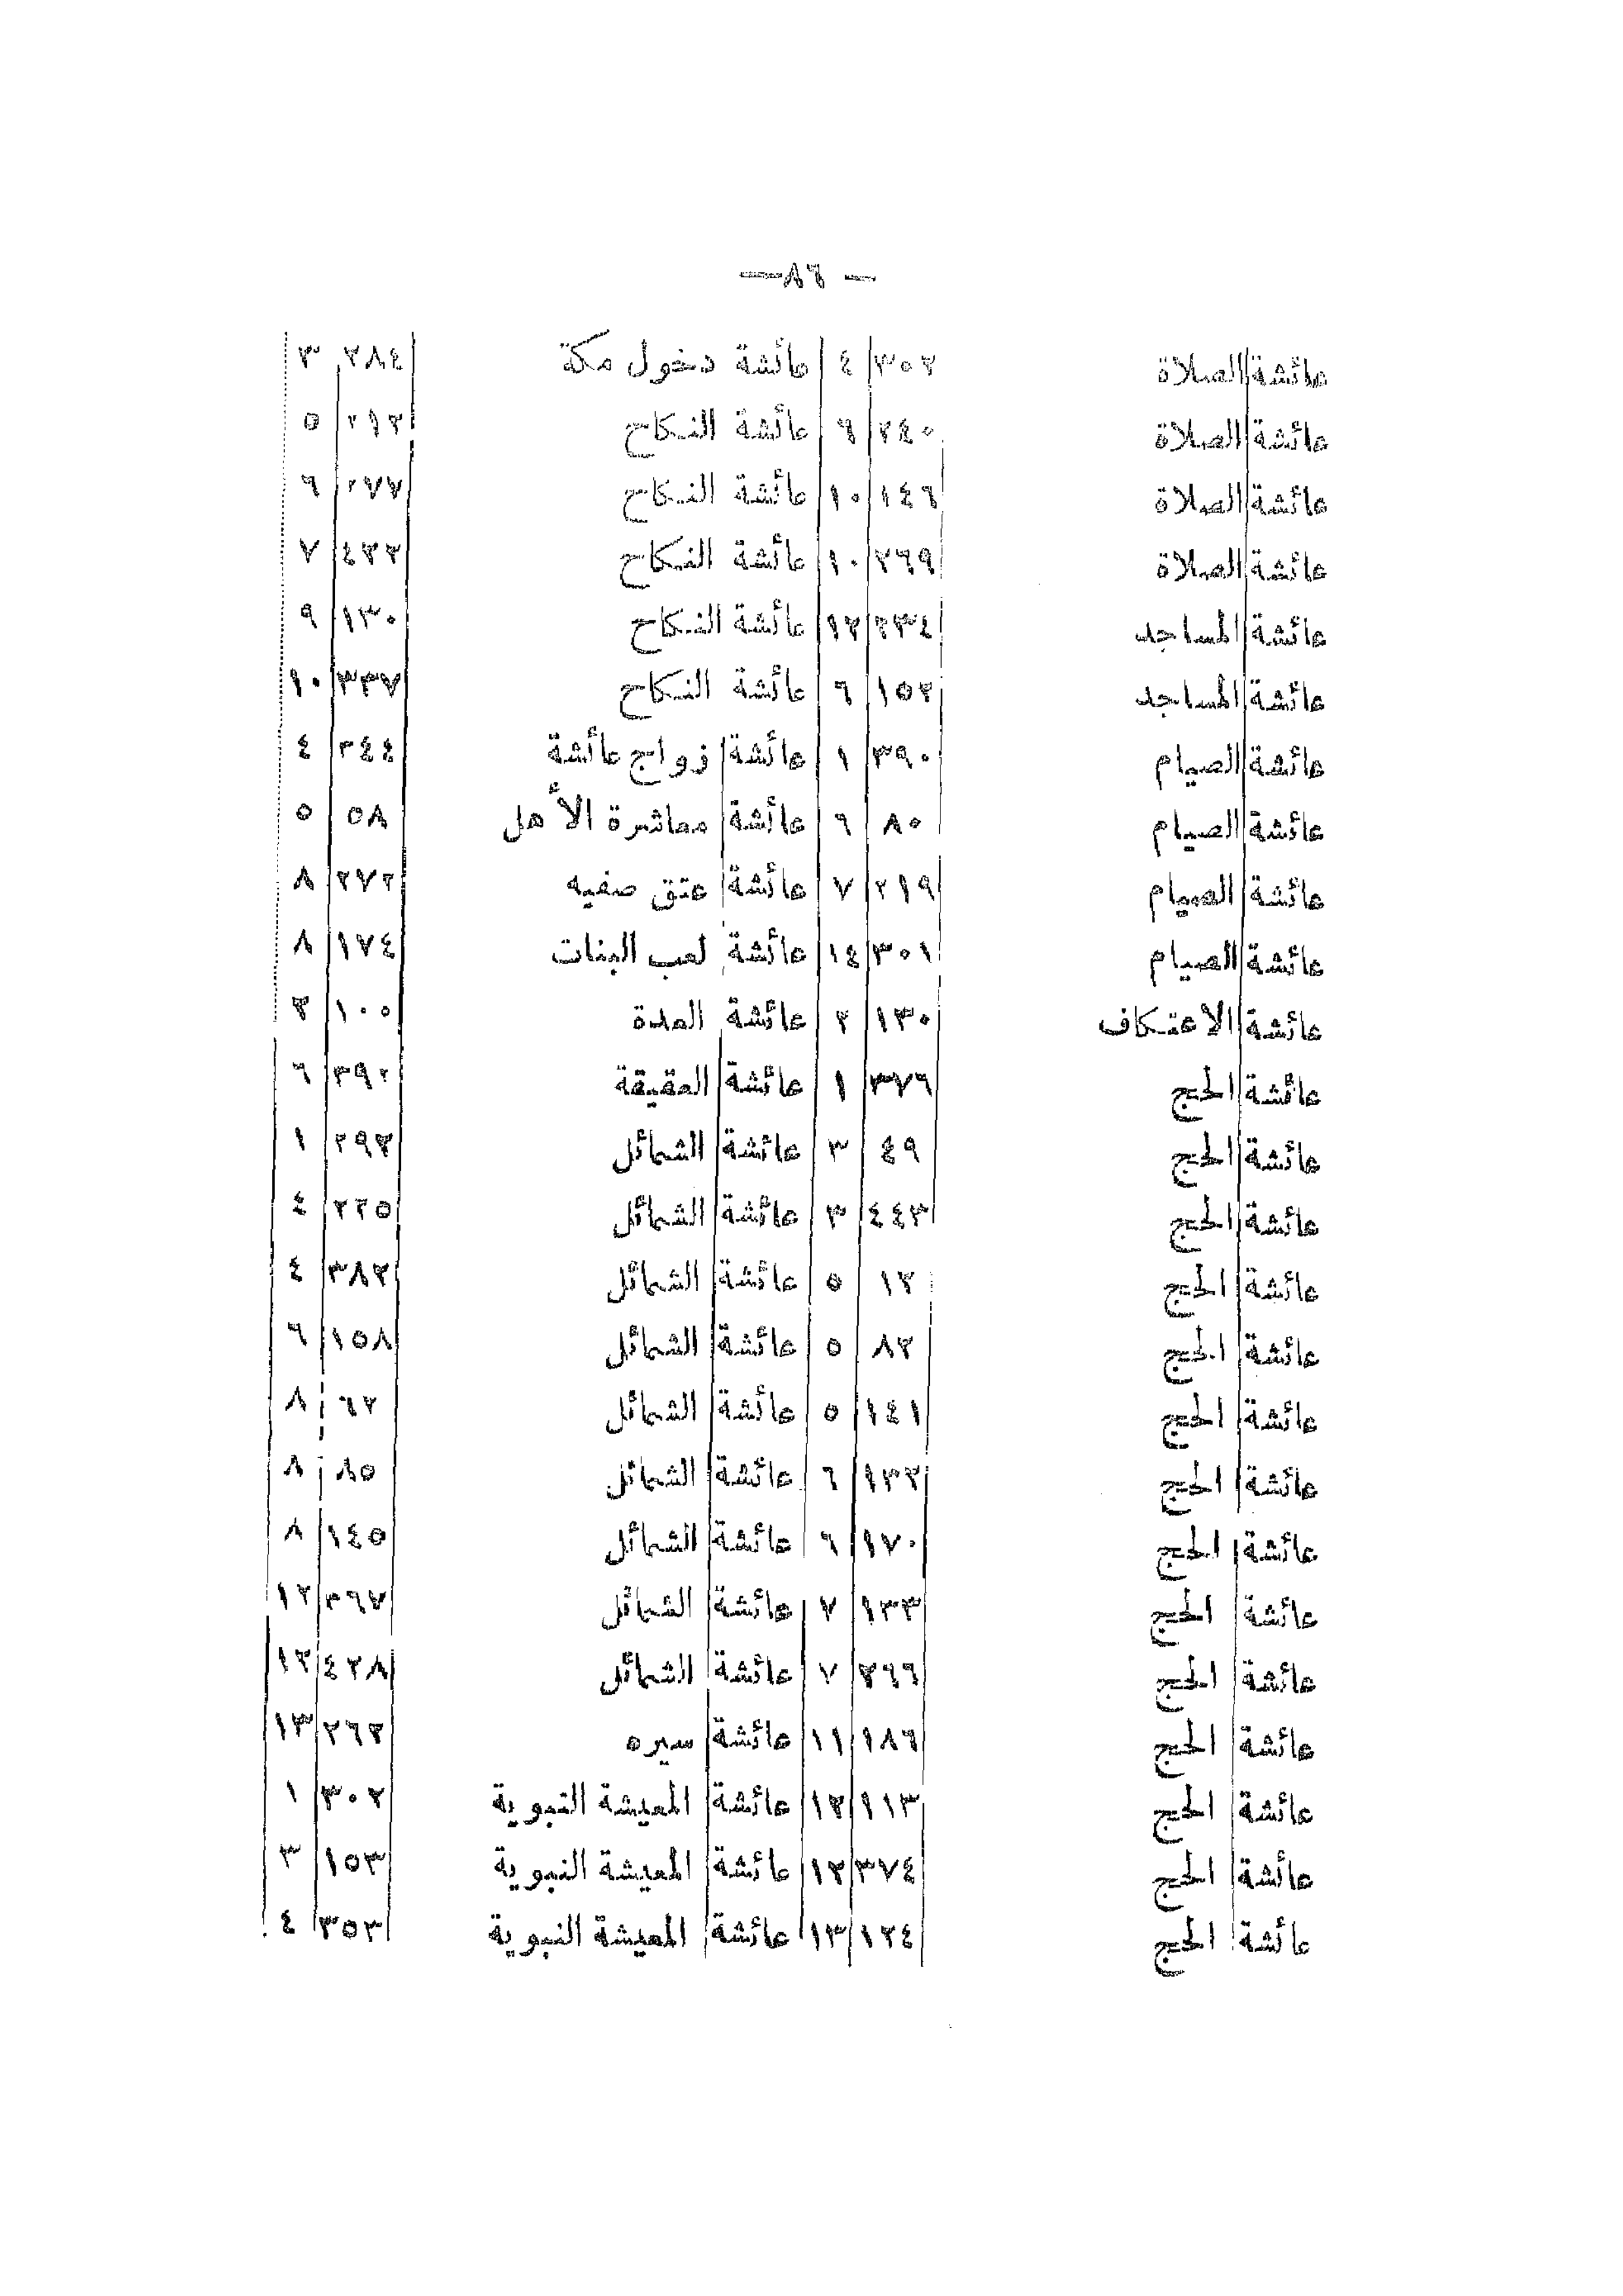 — ٨٦ —
عائشة الصلاة ٣٠٢ ٤ عائشة دخول مكة ٢٨٤ ٣
عائشة الصلاة ٢٤٠ ٦ عائشة النكاح ٢١٢ ٥
عائشة الصلاة ١٤٦ ١٠ عائشة النكاح ٢٧٧ ٦
عائشة الصلاة ٢٦٩ ١٠ عائشة النكاح ٧
عائشة المساجد ٢٣٤ ١٢ عائشة النكاح ١٣٠ ٩
عائشة المساجد ١٥٢ ٦ عائشة النكاح ٣٣٧ ١٠
عائشة الصيام ٣٩٠ ١ عائشة زواج عائشة ٢٤٤ ٤
عائشة الصيام ٨٠ ٦ عائشة معاشرة الأهل ٥٨ ٥
عائشة الصيام ٢١٩ ٧ عائشة عتق صفيه ٢٧٢ ٨
عائشة الصيام ٣٠١ ١٤ عائشة لعب البنات ١٧٤ ٨
عائشة الاعتكاف ١٣٠ ٢ عائشة العدة ١٠٥
عائشة الحج ٣٧٦ ١ عائشة العقيقة ٦
عائشة الحج ٤٩ ٣ عائشة الشمائل ١
عائشة الحج ٤٤٣ ٣ عائشة الشمائل ٢٢٥ ٤
عائشة الحج ١٢ ٥ عائشة الشمائل ٣٨٢ ٤
عائشة الحج ٨٢ ٥ عائشة الشمائل ١٥٨ ٦
عائشة الحج ١٤١ ٥ عائشة الشمائل ٦٢ ٨
عائشة الحج ١٣٢ ٦ عائشة الشمائل ٨٥ ٨
عائشة الحج ١٧٠ ٦ عائشة الشمائل ١٤٥ ٨
عائشة الحج ١٣٣ ٧ عائشة الشمائل ١٢
عائشة الحج ٢٦٦ ٧ عائشة الشمائل ٤٢٨ ١٢
عائشة الحج ١٨٦ ١١ عائشة سيره ٢٦٢ ١٣
عائشة الحج ١١٣ ١٢ عائشة المعيشة النبوية ٣٠٢ ١
عائشة الحج ٣٧٤ ١٢ عائشة المعيشة النبوية ١٥٣ ٣
عائشة الحج ١٢٤ ١٣ عائشة المعيشة النبوية ٣٥٣ ٤